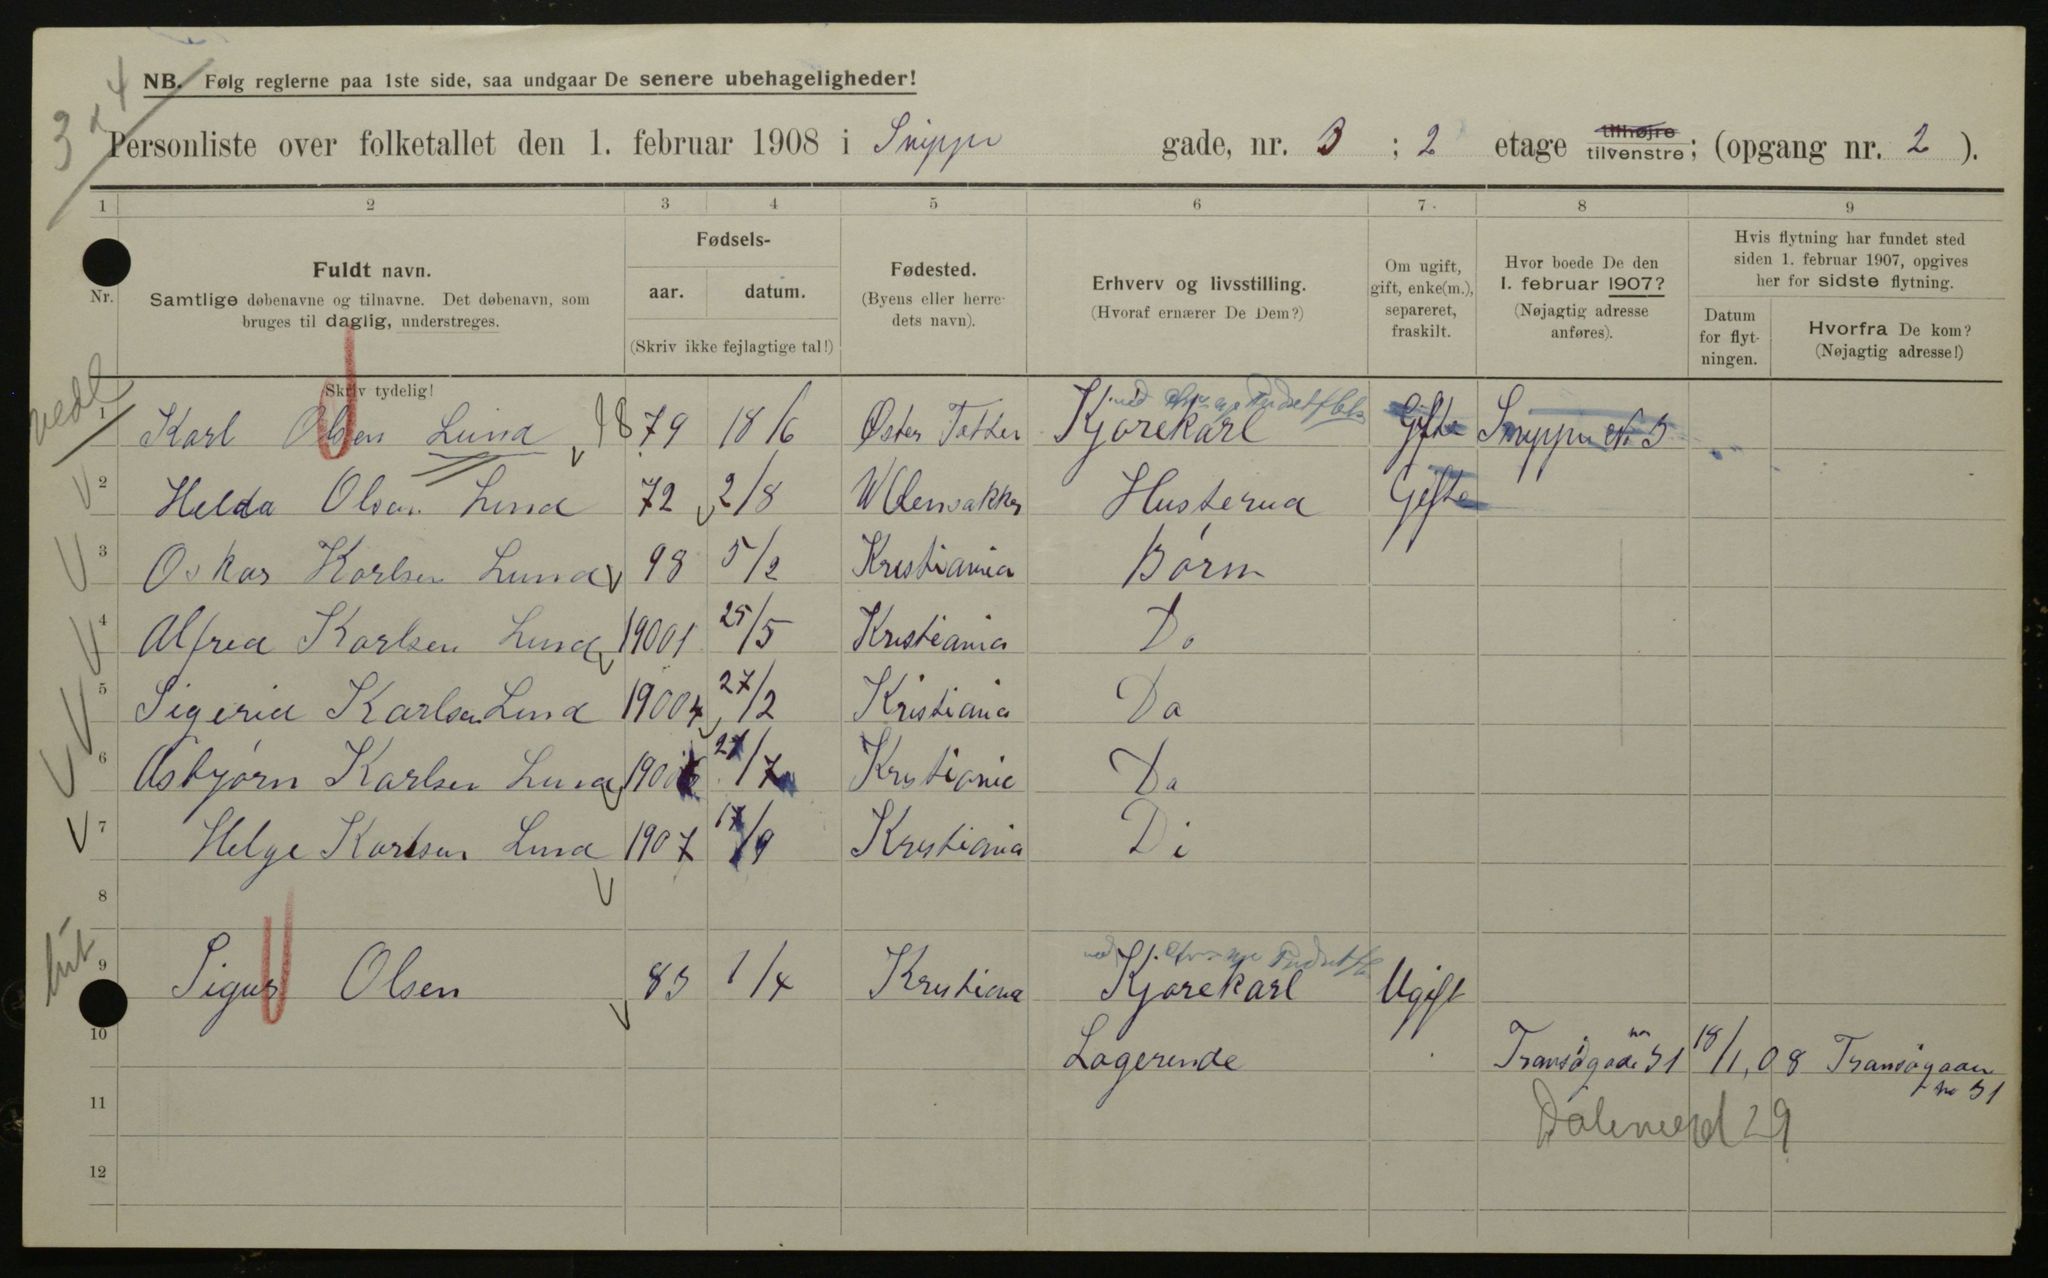 3 x 4
NB. Følg reglerne paa 1ste side, saa undgaar De senere ubehageligheder!
Personliste over folketallet den 1. februar 1908 i Snippr gade, nr. 3 ; 2 etage tilhøjre tilvenstre; (opgang nr. 2 ).
1 2 3 4 5 6 7. 8 9
Nr.
Fuldt navn.
Samtlige døbenavne og tilnavne. Det døbenavn, som
bruges til daglig, understreges.
Skriv tydelig!
Fødsels-
aar. datum.
(Skriv ikke fejlagtige tal!)
Fødested.
(Byens eller herre-
dets navn).
Erhverv og livsstilling.
(Hvoraf ernærer De Dem?)
Om ugift,
gift, enke(m.),
separeret,
fraskilt.
Hvor boede De den
1. februar 1907?
(Nøjagtig adresse
anføres).
Hvis flytning har fundet sted
siden 1. februar 1907, opgives
her for sidste flytning.
Datum
for flyt-
ningen.
Hvorfra De kom?
(Nøjagtig adresse!)
1 Karl Olsen Lund 1879 18/6 Øster Totten Kjørekarl Gifte Snippr No 3
2 Helda Olsen Lund 72 2/8 Ullensakker Husterua Gifte
3 Oskar Karlsen Lund 98 5/2 Kristiania Børn
4 Alfred Karlsen Lund 19001 25/5 Kristiania Do
5 Sigerid Karlsen Lund 19004 27/2 Kristiania Do
6 Asbjørn Karlsen Lund 1905 27/7 Kristiania Do
7 Helge Karlsen Lund 1907 17/9 Kristiania Do
8
9 Sigur Olsen 83 1/4 Kristiana Kjørekarl Ugift
10 Logerende Tromsøgade no 31 18/1, 08 Tromsøgaden
no 31
11 Dalsveien 29
12